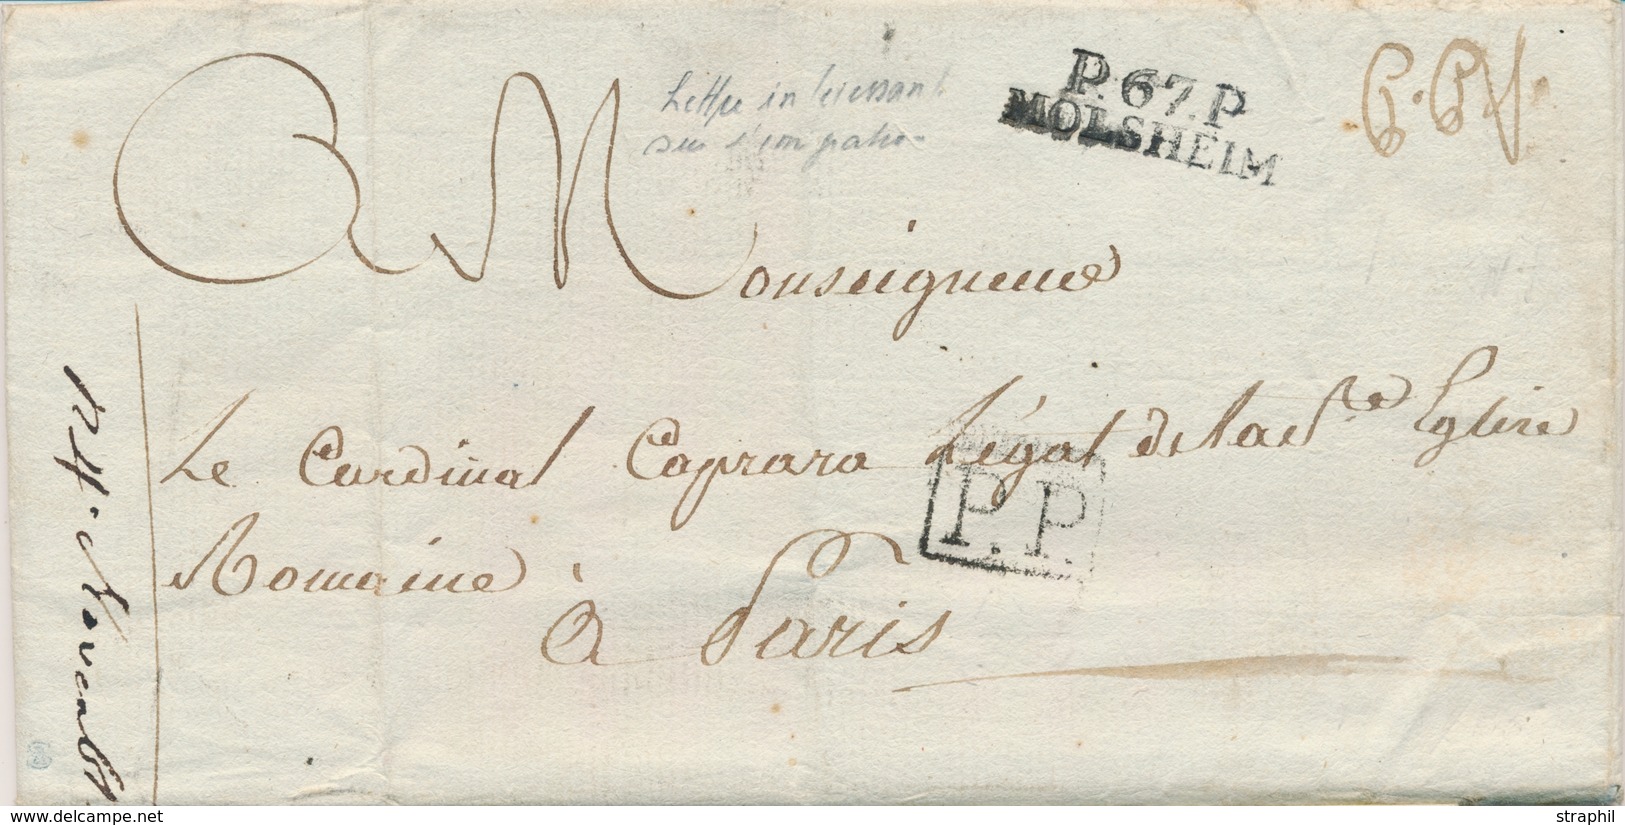 Lettre interessant
sur l'emigration
P.67.P
MOLSHEIM
A Monseigneur
Le Cardinal Caprara Légat de la Ste Eglise
Romaine
à Paris
P.P.
delcampe.net
straphil